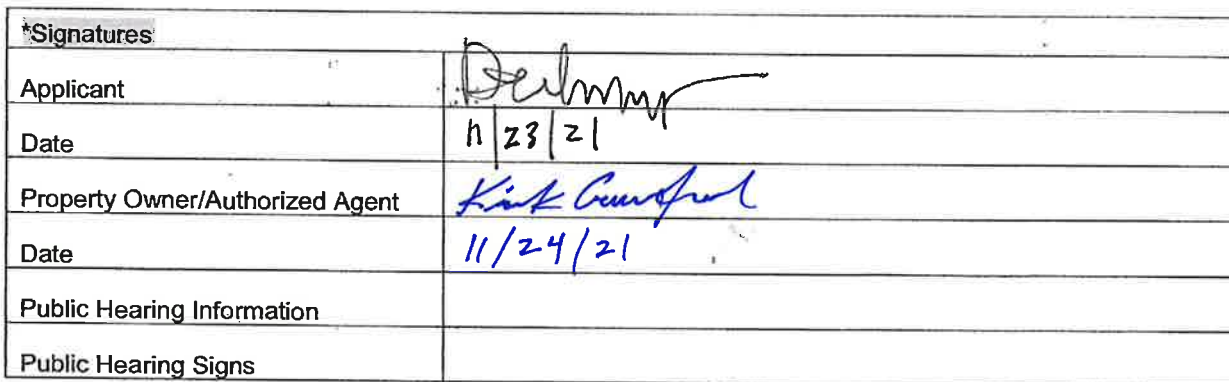 *Signatures
Applicant
Date 11/23/21
Property Owner/Authorized Agent Kirk Crawford
Date 11/24/21
Public Hearing Information
Public Hearing Signs